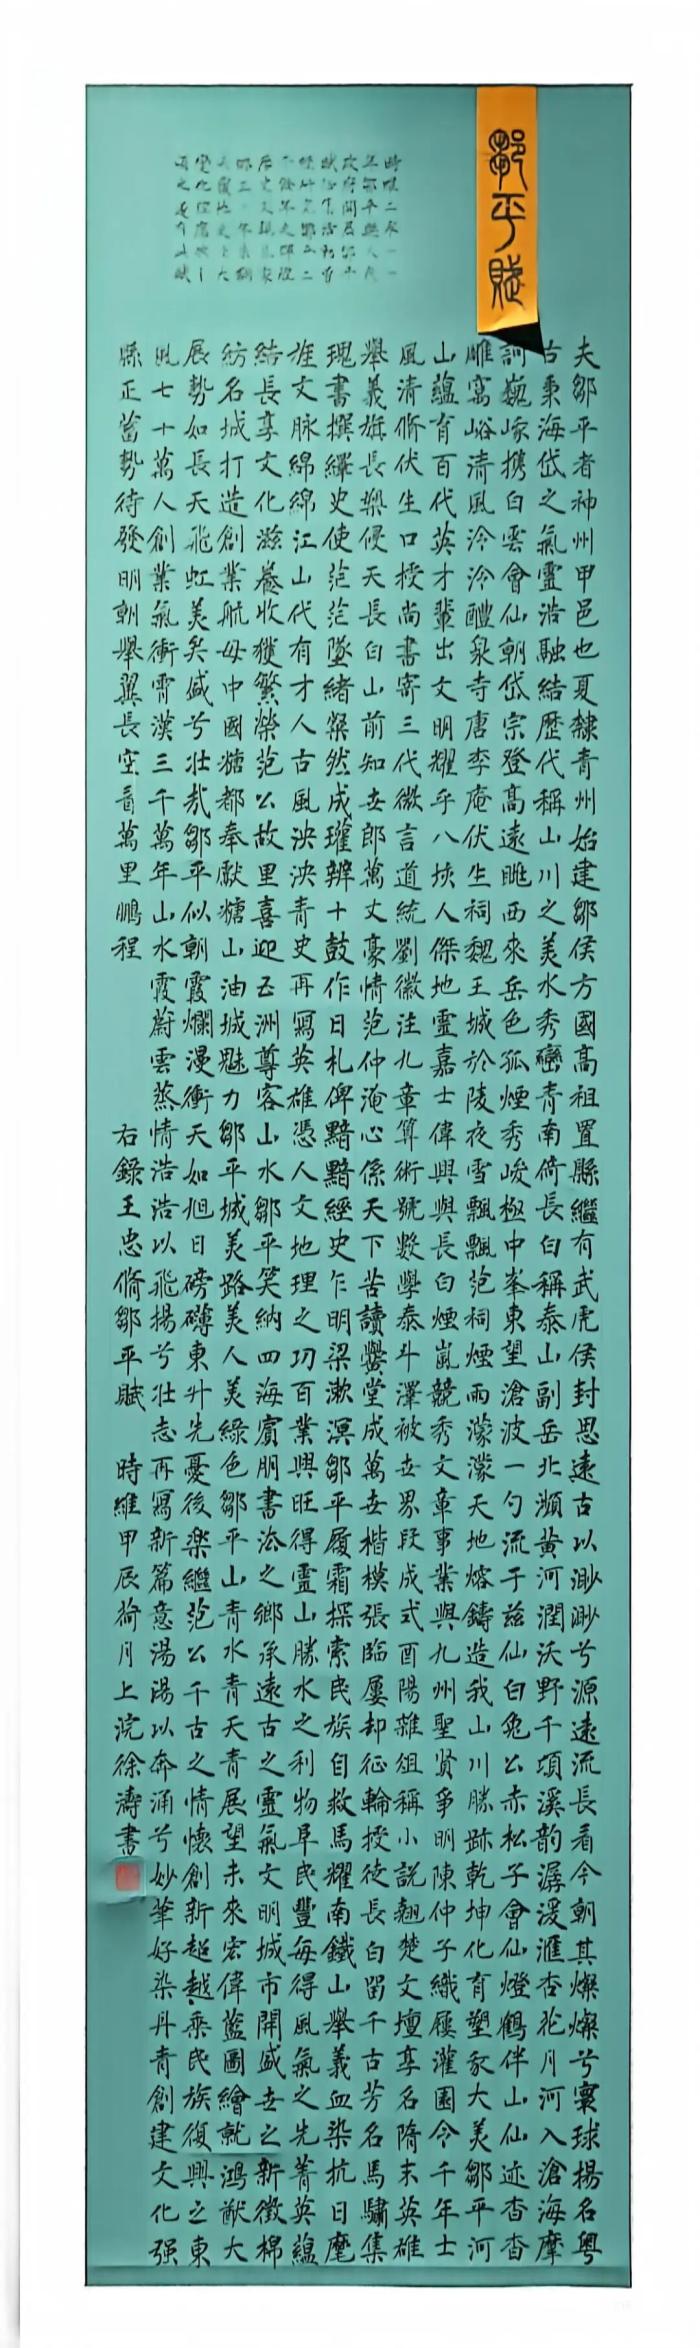 鄒平賦
夫鄒平者神州甲邑也夏隸青州始建鄒侯方國高祖置縣繼有武虎侯封思遠古以渺渺兮源遠流長看今朝其燦燦兮寰球揚名粵
古東海岱之氣靈浩融結歷代稱山川之美水秀巒青南倚長白稱泰山副岳北瀕黃河潤沃野千頃溪韵潺湲滙杏花月河入滄海摩
訶巍峩携白雲會仙朝岱宗登高遠眺西來岳色孤煙秀峻極中峯東望滄波一勺流于兹仙白兔公赤松子會仙燈鶴伴山仙迹杳杳
雕窩峪清風泠泠醴泉寺唐李庵伏生祠魏王城於陵夜雪飄飄范祠煙雨濛濛天地熔鑄造我山川勝跡乾坤化育塑家大美鄒平河
山蘊育百代英才輩出文明耀乎八埏人傑地靈嘉士偉興與長白煙嵐競秀文章事業與九州聖賢爭明陳仲子織屨灌園令千年士
風清脩伏生口授尚書寄三代微言道統劉徽注九章算術號數學泰斗澤被世界段成式酉陽雜俎稱小說翹楚文壇享名隋末英雄
舉義旗長槊侵天長白山前知世郎萬丈豪情范仲淹心係天下苦讀黌堂成萬世楷模張臨屢却征輪授徒長白留千古芳名馬驌集
瑰書撰繹史使茫茫墜緒粲然成瓘辨十鼓作日札俾黯黯經史乍明梁漱溟鄒平履霜探索民族自救馬耀南鐵山舉義血染抗日麾
旌文脉綿綿江山代有才人古風泱泱青史再寫英雄憑人文地理之功百業興旺得靈山勝水之利物阜民豐每得風氣之先菁英蘊
結長享文化滋養收獲繁榮范公故里喜迎五洲尊客山水鄒平笑納四海賓朋書添之鄉承遠古之靈氣文明城市開盛世之新徵棉
紡名城打造創業航母中國糖都奉獻糖山油城魅力鄒平城美路美人美綠色鄒平山青水青天青展望未來宏偉藍圖繪就鴻猷大
展勢如長天飛虹美矣盛兮壯哉鄒平似朝霞爛漫衝天如旭日磅礴東升先憂後樂繼范公千古之情懷創新超越乘民族復興之東
風七十萬人創業氣衝霄漢三千萬年山水霞蔚雲蒸情浩浩以飛揚兮壯志再寫新篇意湯湯以奔涌兮妙筆好染丹青創建文化强
縣正蓄勢待發明朝舉翼長空看萬里鵬程
右錄王忠脩鄒平賦
時維甲辰荷月上浣徐濤書